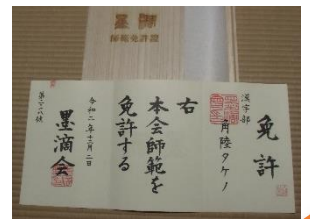 師範免許證
免許
漢字部
角陸タケノ
右
本会師範を
免許する
令和二年十二月二日
墨滴会